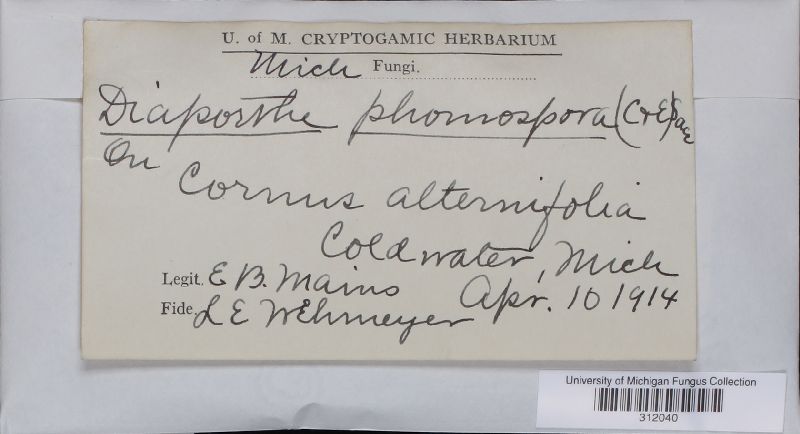 U. of M. CRYPTOGAMIC HERBARIUM
Mich Fungi.
Diaporthe phomospora (C+E) Sacc
On
Cornus alternifolia
Coldwater, Mich
Legit. E B. Mains Apr. 10 1914
Fide. L E Wehmeyer
University of Michigan Fungus Collection
312040